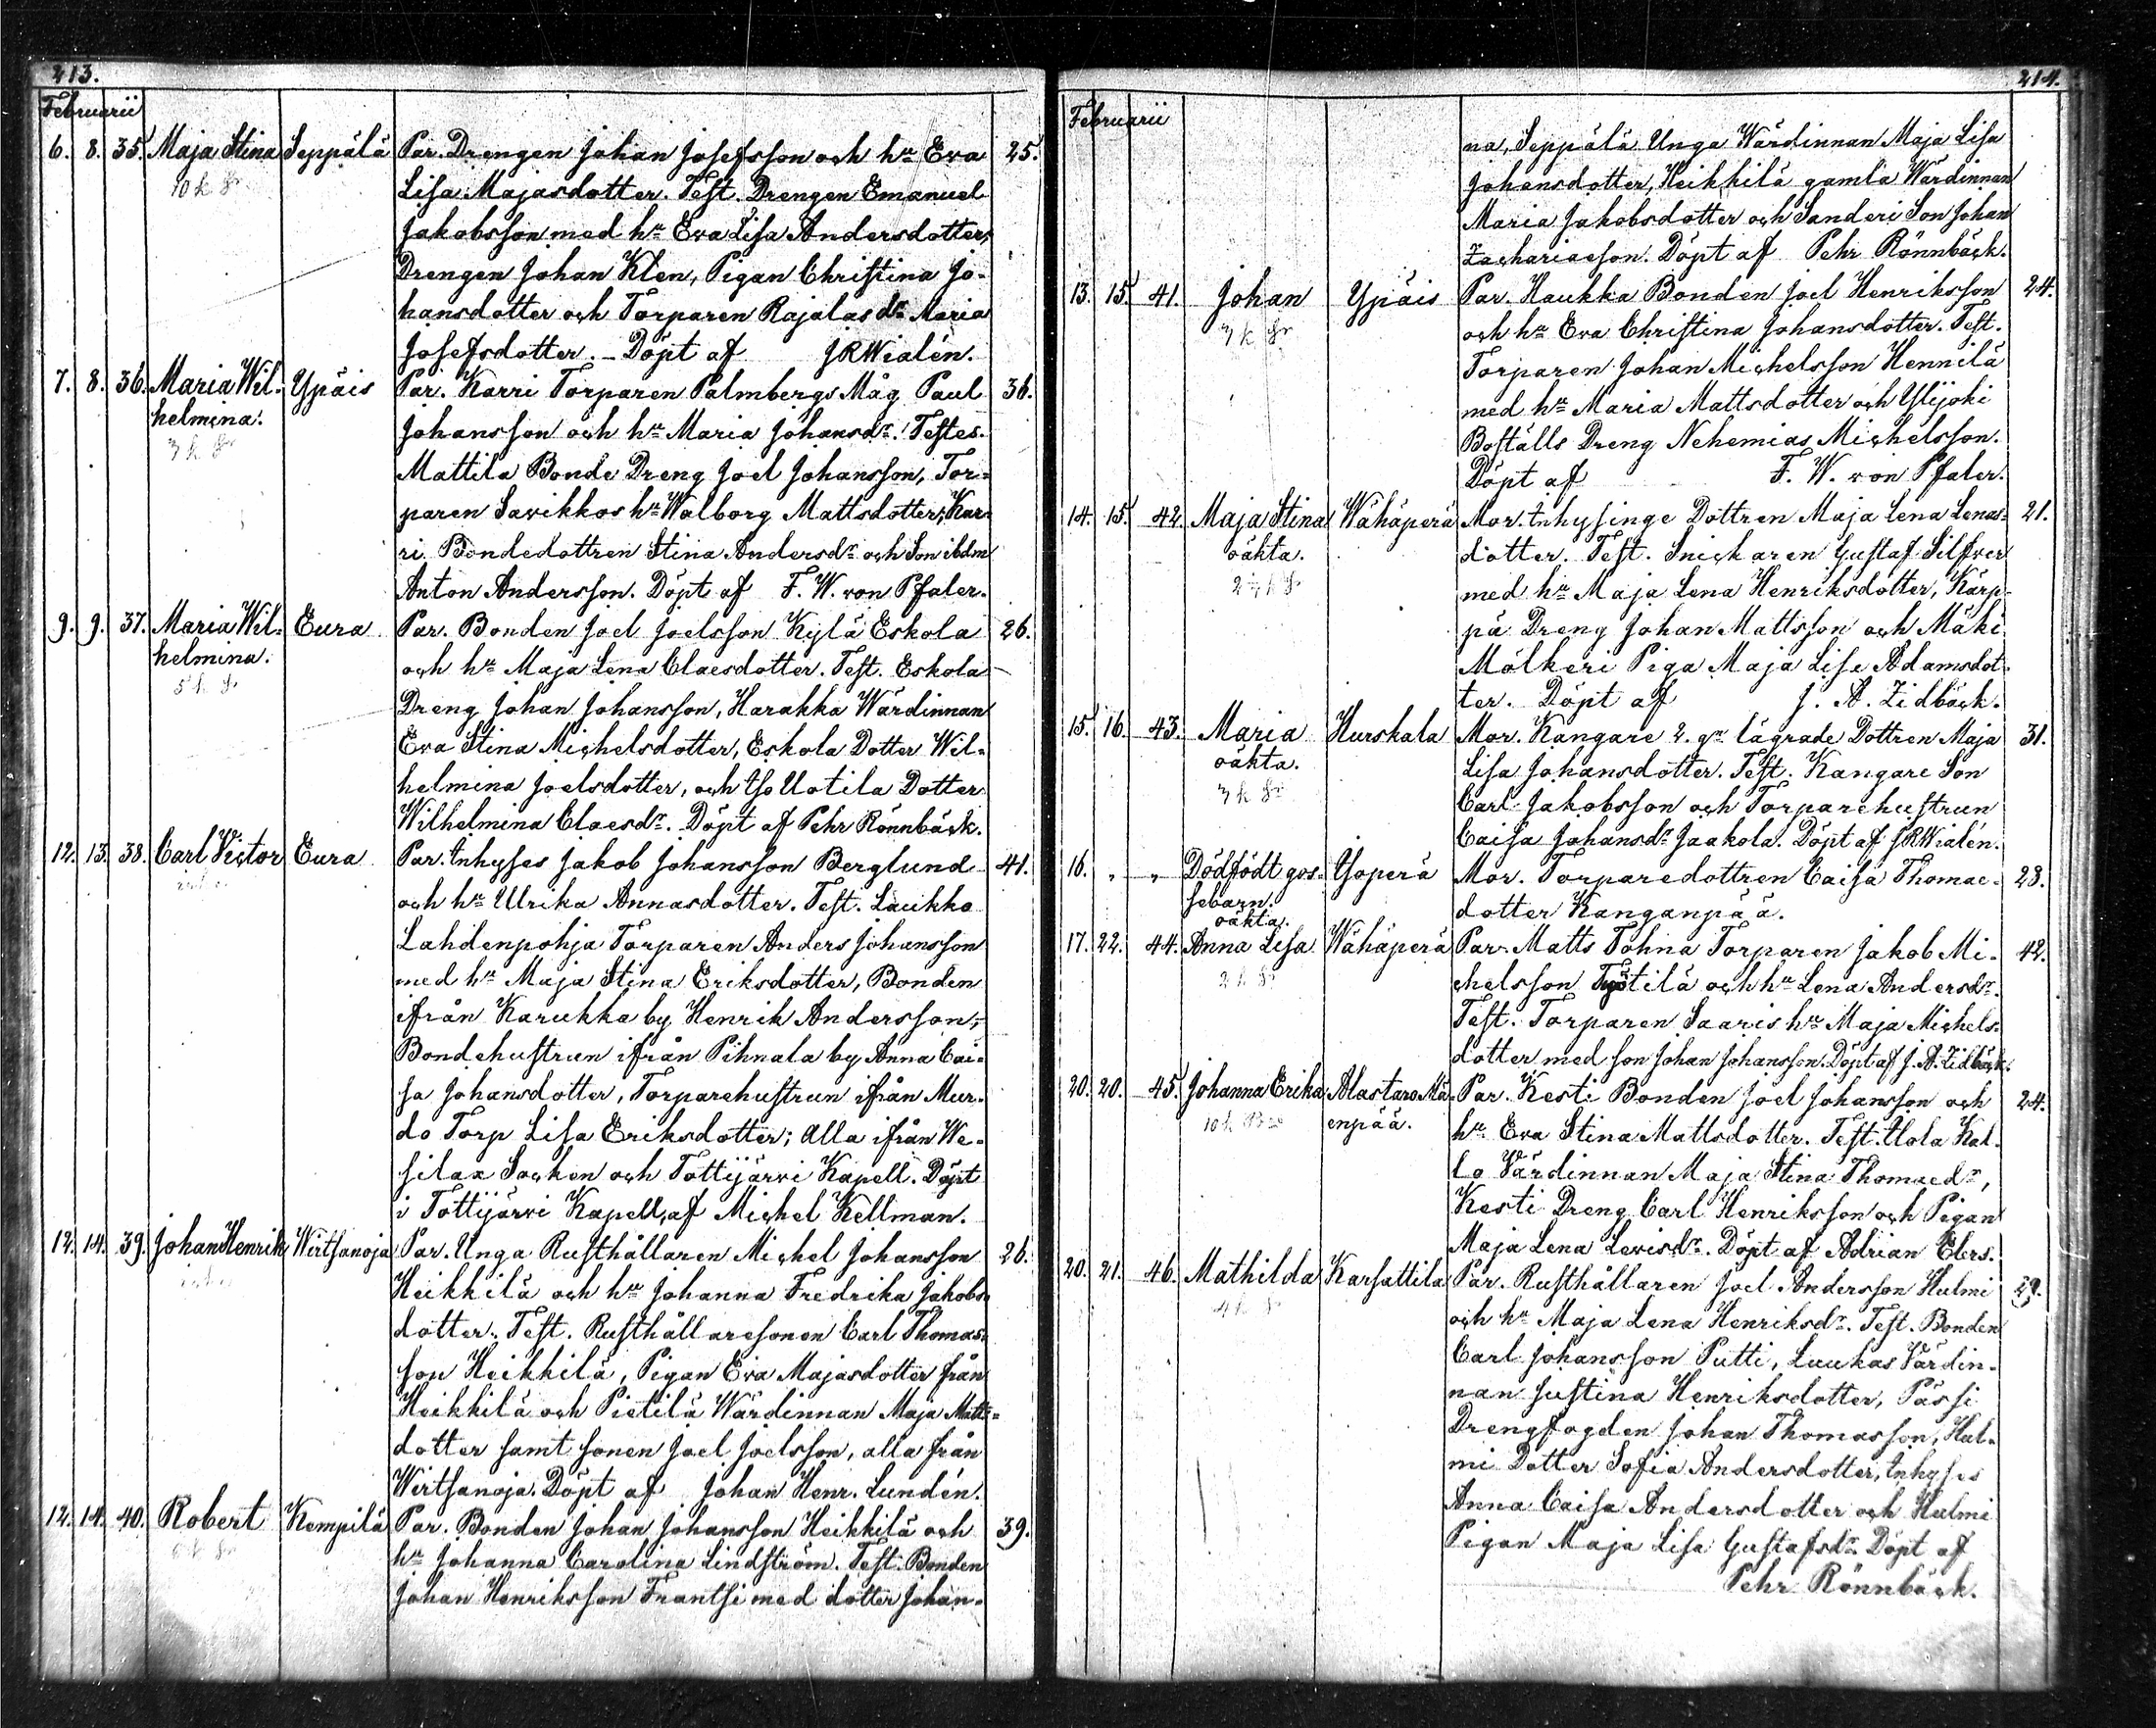 213.
Februarii
6. 8. 35. Maja Stina Seppälä Par. Drengen Johan Josefsson och hu Eva 25.
10 k Sr Lisa Majasdotter. Test. Drengen Emanuel
Jakobsson med hu Eva Lisa Andersdotter,
Drengen Johan Klen, Pigan Christina Jo-
hansdotter och Torparen Rajalas dr Maria
Josefsdotter. Döpt af JRWialén.
7. 8. 36. Maria Wil- Ypäis Par. Karri Torparen Palmbergs Måg Paul 36.
helmina. Johansson och hu Maria Johansdr. Testes.
3 k Sr Mattila Bonde Dreng Joel Johansson, Tor-
paren Savikkos hu Walborg Mattsdotter, Kar-
ri Bondedottren Stina Andersdr och Son ibdm
Anton Andersson. Döpt af F. W. von Pfaler.
9. 9. 37. Maria Wil- Eura Par. Bonden Joel Joelsson Kylä Eskola 26.
helmina. och hu Maja Lena Claesdotter. Test. Eskola
5 k Sr Dreng Johan Johansson, Harakka Wärdinnan
Eva Stina Michelsdotter, Eskola Dotter Wil-
helmina Joelsdotter, och Iso Uotila Dotter
Wilhelmina Claesdr. Döpt af Pehr Rönnbäck.
12. 13. 38. Carl Victor Eura Par. Inhyses Jakob Johansson Berglund 41.
och hu Ulrika Annasdotter. Test. Laukko
Lahdenpohja Torparen Anders Johansson
med hu Maja Stina Eriksdotter, Bonden
ifrån Karukka by Henrik Andersson,
Bondehustrun ifrån Pihnala by Anna Cai-
sa Johansdotter, Torparehustrun ifrån Mur-
do Torp Lisa Eriksdotter; Alla ifrån We-
silax Socken och Tottijärvi Kapell. Döpt
i Tottijärvi Kapell, af Michel Kellman.
12. 14. 39. Johan Henrik Wirtsanoja Par. Unga Rusthållaren Michel Johansson 26.
Heikkilä och hu Johanna Fredrika Jakobs-
dotter. Test. Rusthållaresonen Carl Thomas-
son Heikkilä, Pigan Eva Majasdotter från
Heikkilä och Pietilä Wärdinnan Maja Matts-
dotter samt sonen Joel Joelsson, alla från
Wirtsanoja. Döpt af Johan Henr. Lundén.
12. 14. 40. Robert Kempilä Par. Bonden Johan Johansson Heikkilä och 39.
hu Johanna Carolina Lindström. Test. Bonden
Johan Henriksson Frantsi med dotter Johan-
214.
Februarii
na, Seppälä Unga Wärdinnan Maja Lisa
Johansdotter, Heikkilä gamla Wärdinnan
Maria Jakobsdotter och Sanderi Son Johan
Zachariasson. Döpt af Pehr Rönnbäck.
13. 15. 41. Johan Ypäis Par. Haukka Bonden Joel Henriksson 24.
3 k Sr och hu Eva Christina Johansdotter. Test.
Torparen Johan Michelsson Hennilä
med hu Maria Mattsdotter och Ylijoki
Boställs Dreng Nehemias Michelsson.
Döpt af F. W. von Pfaler.
14. 15. 42. Maja Stina Wähäperä Mor. Inhysinge Dottren Maja Lena Lenas- 21.
oäkta. dotter. Test. Snickaren Gustaf Silfver
med hu Maja Lena Henriksdotter, Kärp-
pä Dreng Johan Mattsson och Mäki
Mölkeri Piga Maja Lisa Adamsdot-
ter. Döpt af J. A. Zidbäck.
15. 16. 43. Maria Hurskala Mor. Kangare 2. gr lägrade Dottren Maja 31.
oäkta. Lisa Johansdotter. Test. Kangare Son
3 k Sr Carl Jakobsson och Torparehustrun
Caisa Johansdr Jaakola. Döpt af JRWialén.
16. " " Dödfödt gos- Isoperä Mor. Torparedottren Caisa Thomae- 23.
sebarn. dotter Kanganpää.
oäkta.
17. 22. 44. Anna Lisa Wähäperä Par. Matts Tohna Torparen Jakob Mi- 42.
2 k Sr chelsson Työtilä och hu Lena Andersdr.
Test. Torparen Saaris hu Maja Michels-
dotter med son Johan Johansson. Döpt af J. A. Zidbäck.
20. 20. 45. Johanna Erika Alastaro Mä- Par. Kesti Bonden Joel Johansson och 24.
10 k enpää. hu Eva Stina Mattsdotter. Test. Ilola Kal-
lo Värdinnan Maja Stina Thomaedr,
Kesti Dreng Carl Henriksson och Pigan
Maja Lena Levisdr. Döpt af Adrian Elers.
20. 21. 46. Mathilda Karsattila Par. Rusthållaren Joel Andersson Hulmi 29.
4 k Sr och hu Maja Lena Henriksdr. Test. Bonden
Carl Johansson Putti, Luukas Värdin-
nan Justina Henriksdotter, Pässi
Drengfogden Johan Thomasson, Hul-
mi Dotter Sofia Andersdotter, Inhyses
Anna Caisa Andersdotter och Hulmi
Pigan Maja Lisa Gustafsdr. Döpt af
Pehr Rönnbäck.